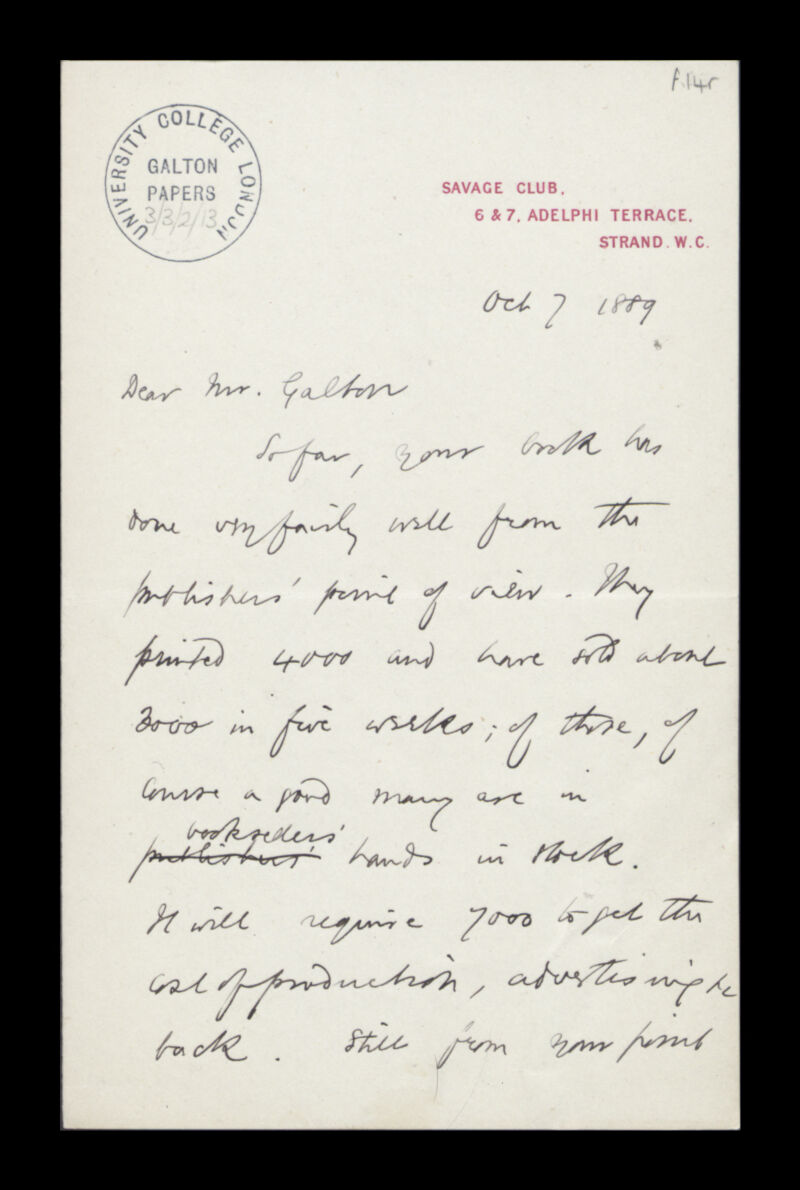 f.14r
UNIVERSITY COLLEGE LONDON
GALTON
PAPERS
3/3/2/13
SAVAGE CLUB,
6 & 7, ADELPHI TERRACE,
STRAND. W.C.
Oct 7 1889
Dear Mr. Galton
So far, your book has
done very fairly well from the
publishers' point of view. They
printed 4000 and have sold about
3000 in five weeks; of those, of
course a good many are in
booksellers'
publishers' hands in stock.
It will require 7000 to get the
cost of production, advertising &c
back. Still from your point